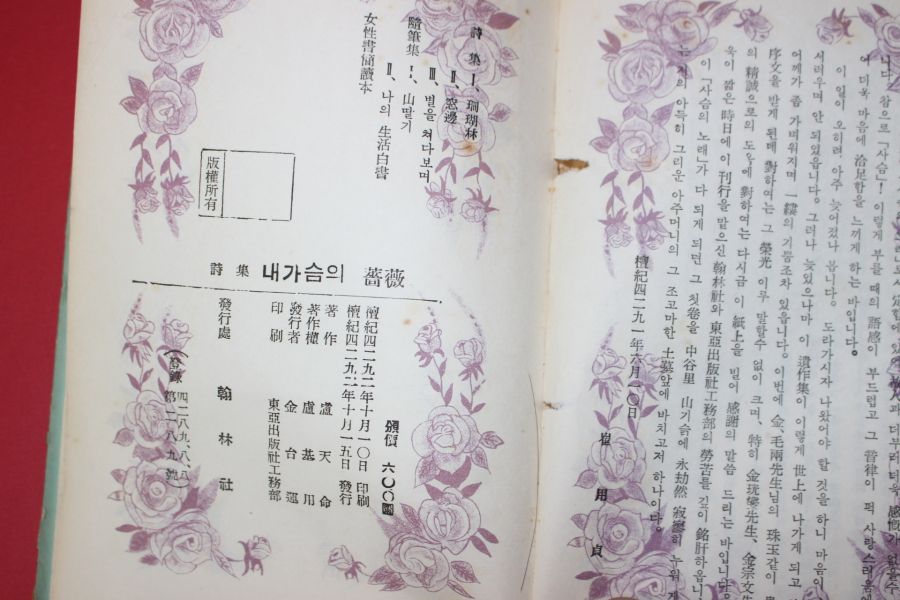 니다. 참으로「사슴」! 이렇게 부를 때의 語感이 부드럽고 그 音律이 퍽 사랑스러움
여 더욱 마음에 洽足함을 느끼게 하는 바입니다.
이 일이 오히려 아주 늦어졌나 봅니다. 도라가시자 나왔어야 할 것을 하니 마음이
서러우며 안 되었읍니다. 그러나 늦었으나마 이 遺作集이 이렇게 世上에 나가게 되고
어깨가 좀 가벼워지며 一縷의 기쁨조차 있읍니다. 이번에 金、毛兩先生님의 珠玉같이
序文을 받게 된데 對하여는 그 榮光 이루 말할수 없이 크며、特히 金珖燮先生、金宗文先
의 精誠으로의 도움에 對하여는 다시금 이 紙上을 빌어 感謝의 말씀 드리는 바입니다.
욱이 짧은 時日에 이 刊行을 맡으신 翰林社와 東亞出版社工務部의 勞苦를 깊이 銘肝하옵니
이「사슴의 노래」가 다 되게 되면 그 첫卷을 中谷里 山기슭에 永劫然 寂寥히 누워 계
는 저의 아득히 그리운 아주머니의 그 조고마한 土墓앞에 바치고저 하나이다.
檀紀四二九一年六月一〇日
崔用貞
詩集 Ⅰ、珊瑚林
Ⅱ、窓邊
Ⅲ、별을 쳐다보며
隨筆集 Ⅰ、山딸기
Ⅱ、나의 生活白書
女性書簡讀本
版權所有
詩集 내가슴의 薔薇
頒價 六〇〇圜
檀紀四二九二年十月一〇日 印刷
檀紀四二九二年十月一五日 發行
著作 盧天命
著作權 盧基用
發行者 金台運
印刷 東亞出版社工務部
發行處 翰林社
(登錄 四二八九、八、八
第二八九號)